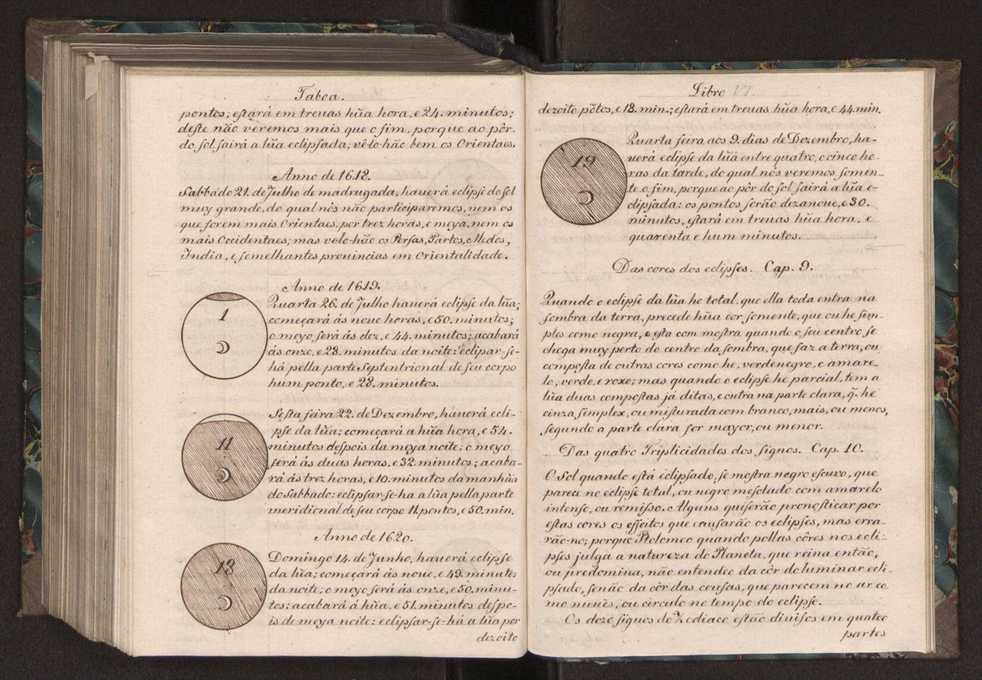 Taboa.
pontos; estará em treuas hũa hora, e 24. minutos;
deste não veremos mais que o fim, porque ao pôr
do sol sairá a lũa eclipsada; vêlohão bem os Orientaes.
Anno de 1612.
Sabbado 21. de Julho de madrugada, hauerá eclipse do sol
muy grande, do qual nòs não participaremos, nem os
que forem mais Orientaes. por trez horas, e meya, nem os
mais Occidentaes; mas vêlo hão os Persas, Partos, Medos,
India, e semelhantes prouincias em Orientalidade.
Anno de 1619.
1
Quarta 26. de Julho hauerá eclipse da lũa;
começará ás noue horas, e 50. minutos;
o meyo será ás dez, e 44. minutos; acabará
ás onze, e 28. minutos da noite: eclipsar-se-
há pella parte Septentrional de seu corpo
hum ponto, e 28. minutos.
11
Sesta feira 22. de Dezembro, hauerá ecli-
pse da lũa; começará a hũa hora, e 54.
minutos despois da meya noite: o meyo
será ás duas horas, e 32. minutos; acaba-
rá ás trez horas, e 10. minutos da manhãa
do Sabbado: eclipsar-se-ha a lũa pella parte
meridional de seu corpo 11. pontos, e 50. min.
Anno de 1620.
18
Domingo 14. de Junho, hauerá eclipse
da lũa; começará ás noue, e 49. minutos
da noite; o meyo será ás onze, e 50. minu-
tos: acabará á hũa, e 51. minutos despo-
is de meya noite: eclipsar-se-há a lũa por
dezoito
Libro VI.
dezoito põtos, e 18. min.; estará em treuas hũa hora, e 44. min.
19
Quarta feira aos 9. dias de Dezembro, ha-
uerá eclipse da lũa entre quatro, e cinco ho-
ras da tarde, do qual nòs veremos somen-
te o fim, porque ao pôr do sol sairá a lũa e-
clipsada: os pontos serão dezanoue, e 30.
minutos, estará em treuas hũa hora, e
quarenta e hum minutos.
Das cores dos eclipses. Cap. 9.
Quando o eclipse da lũa he total, que ella toda entra na
sombra da terra, precede hũa cor somente, que ou he sim-
ples como negra, e esta com mostra quando o seu centro se
chega muy perto do centro da sombra, que faz a terra, ou
composta de outras cores como he, verdenegro, e amare-
lo, verde, e roxo; mas quando o eclipse he parcial, tem a
lũa duas compostas ja ditas, e outra na parte clara, q. he
cinza simplex, ou misturada com branco, mais, ou menos,
segundo a parte clara for mayor, ou menor.
Das quatro Triplicidades dos signos. Cap. 10.
O Sol quando está eclipsado, se mostra negro escuro, que
parece no eclipse total, ou negro mesclado com amarelo
intenso, ou remisso. Alguns quiserão pronosticar por
estas cores os effeitos que causarão os eclipses, mas erra-
rão-no; porque Ptolomeo quando pollas côres nos ecli-
pses julga a natureza do Planeta, que reina então,
ou predomina, não entendeo da côr do luminar ecli-
psado, senão da côr das cousas, que parecem no ar co-
mo nuuẽs, ou circulo no tempo do eclipse.
Os doze signos do Zodiaco estão diuisos em quatro
partes